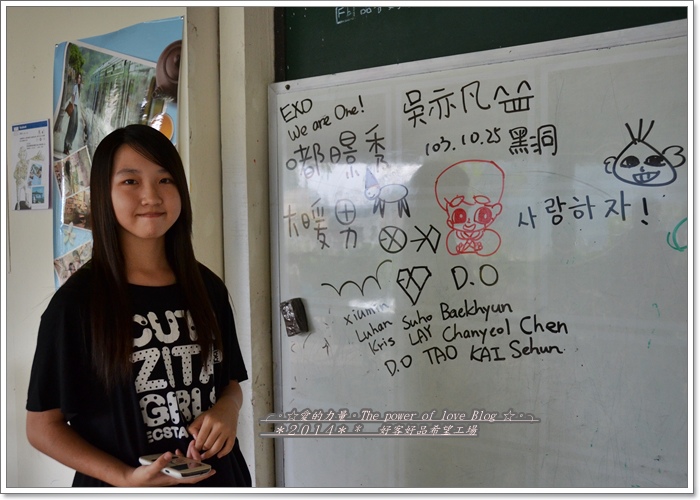 EXO
We are One!
吳亦凡
103.10.25 黑洞
嘟暻秀
大暖男
사랑하자!
D.O
xiumin
Luhan Suho Baekhyun
Kris LAY Chanyeol Chen
D.O TAO KAI Sehun
CUT
ZITA
GIRL
ECSTA
☆愛的力量。The power of love Blog ☆
*2014* * 好客好品希望工場